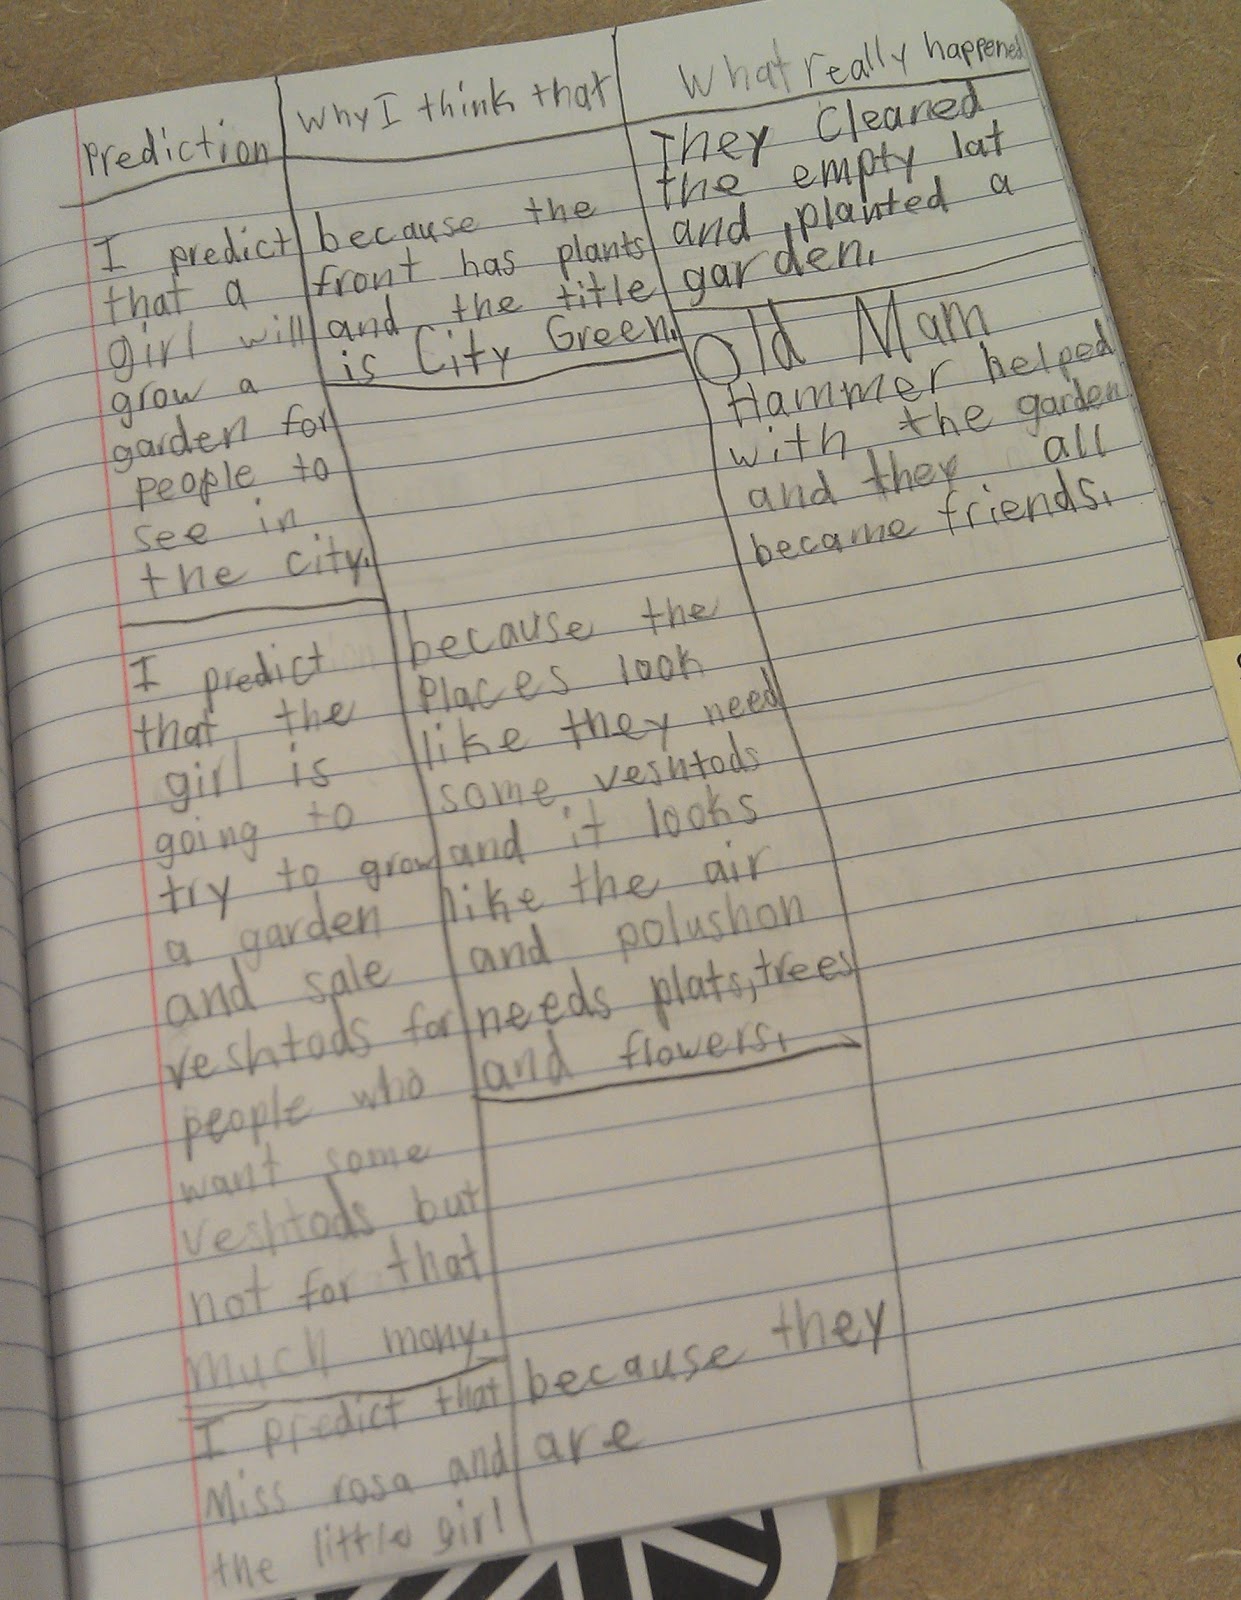 Prediction
I predict
that a
girl will
grow a
garden for
people to
see in
the city.
I predict
that the
girl is
going to
try to grow
a garden
and sale
veshtods for
people who
want some
veshtods but
not for that
much mony.
I predict that
Miss rosa and
the little girl
Why I think that
because the
front has plants
and the title
is City Green.
because the
Places look
like they need
some veshtods
and it looks
like the air
and polushon
needs plats, trees
and flowers.
because they
are
What really happened
They Cleaned
the empty lat
and planted a
garden.
Old Mam
Hammer helped
with the garden
and they all
became friends.